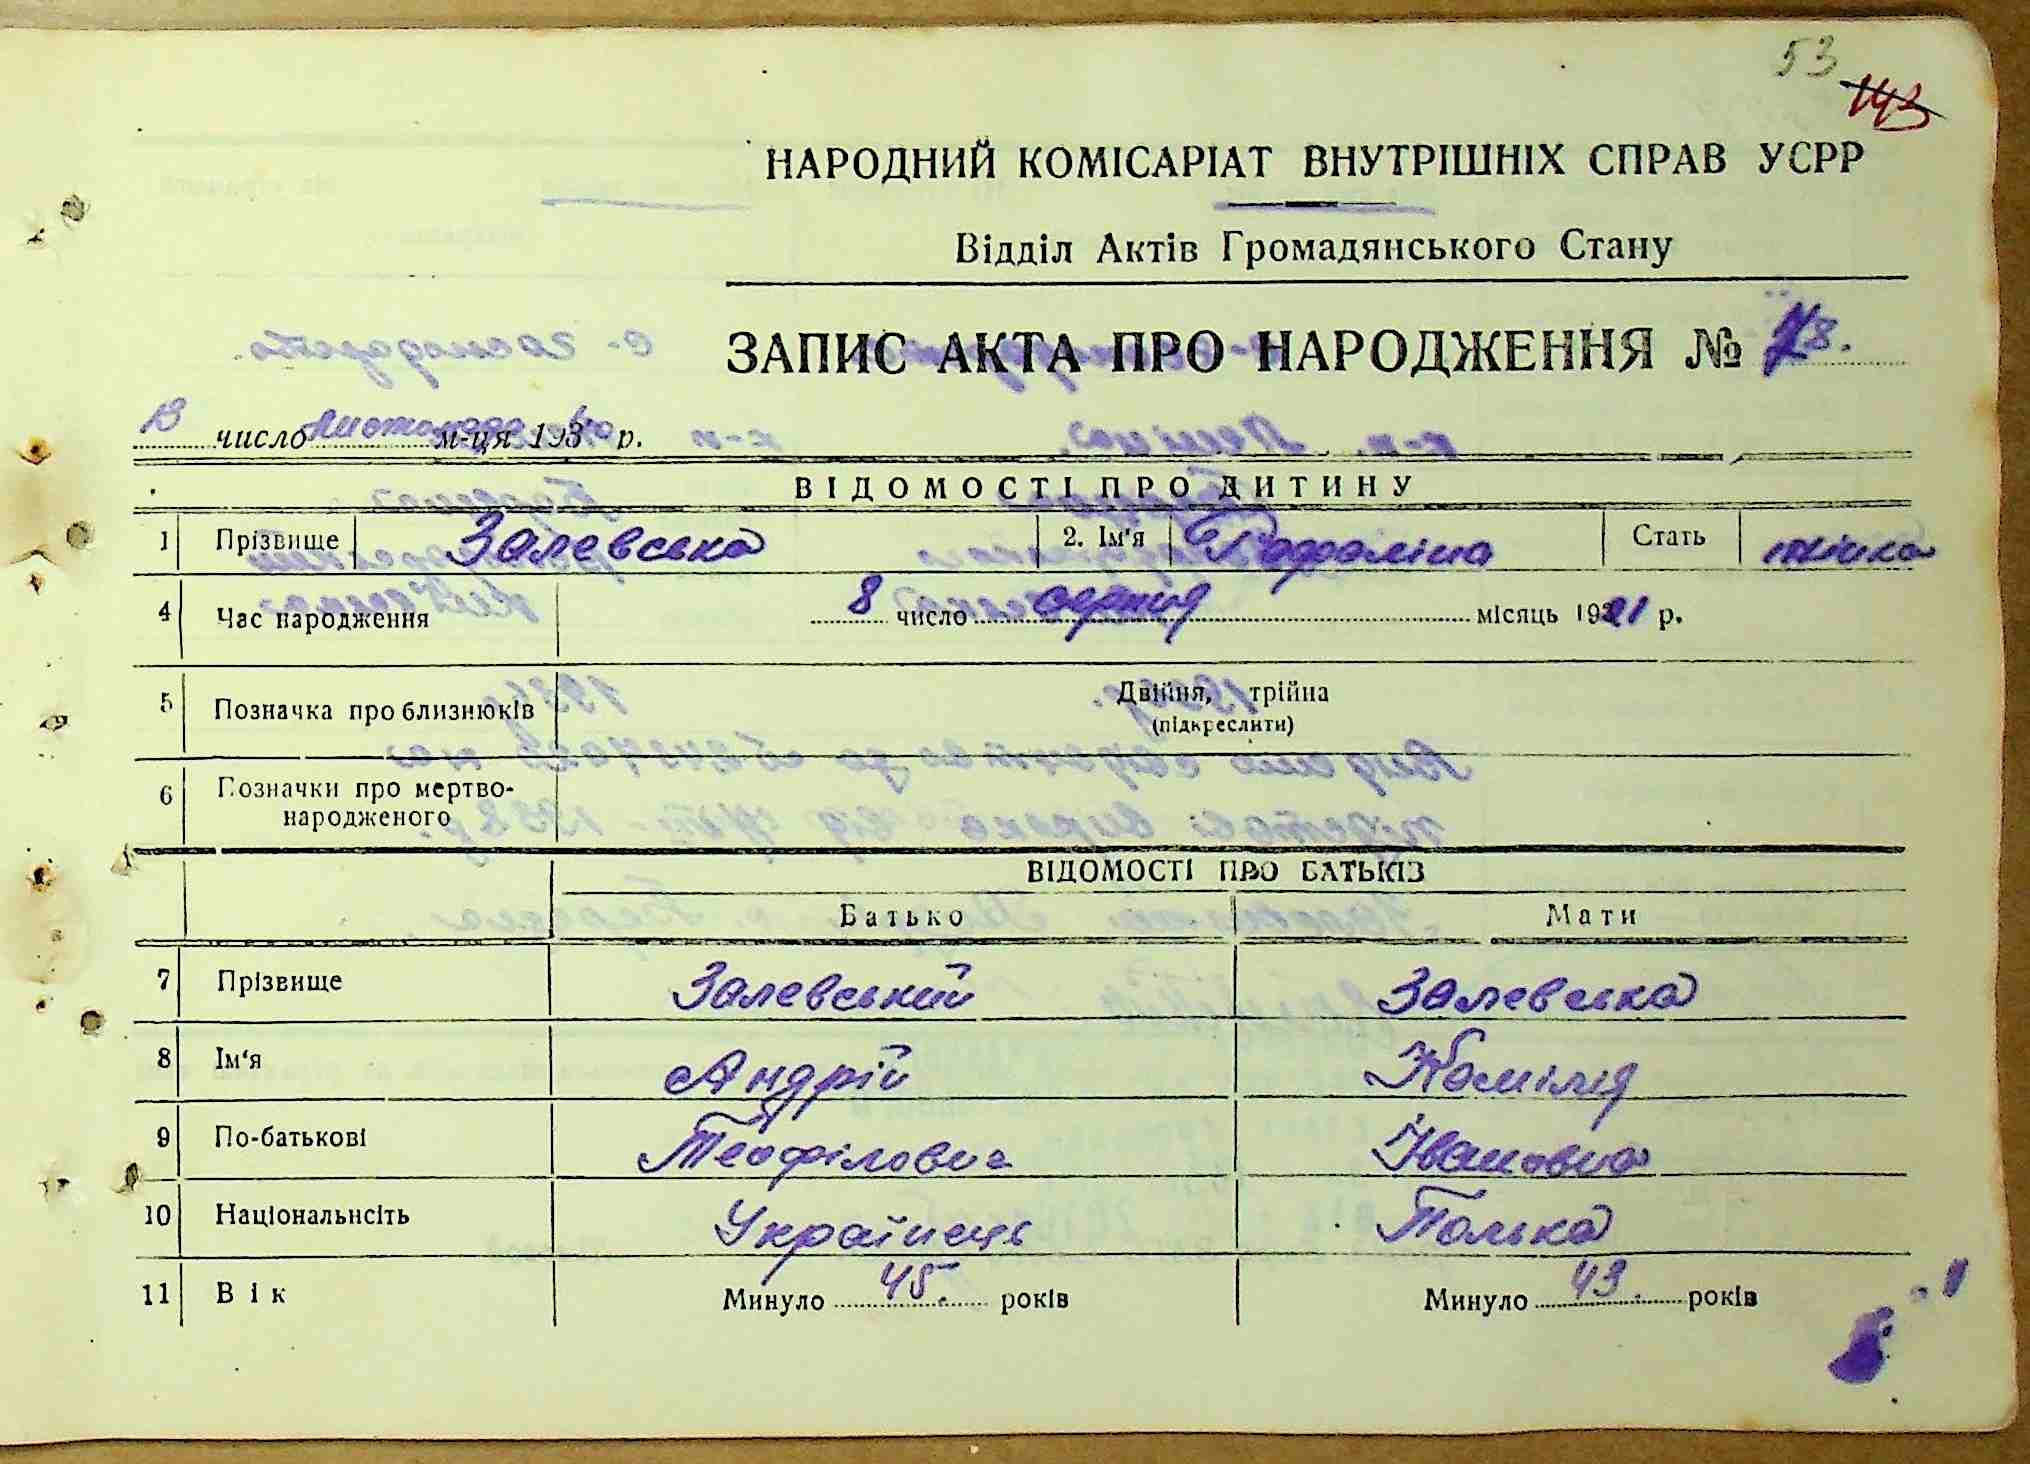 53
143
НАРОДНИЙ КОМІСАРІАТ ВНУТРІШНІХ СПРАВ УСРР
Відділ Актів Громадянського Стану
ЗАПИС АКТА ПРО НАРОДЖЕННЯ № 78.
13 число Листопада м-ця 193 р.
ВІДОМОСТІ ПРО ДИТИНУ
1 Прізвище Залевська 2. Ім'я Стать жінка
4 Час народження 8 число серпня місяць 1921 р.
5 Позначка про близнюків Двійня, трійна
(підкреслити)
6 Позначки про мертво-
народженого
ВІДОМОСТІ ПРО БАТЬКІВ
Батько Мати
7 Прізвище Залевський Залевська
8 Ім'я Андрій Камілія
9 По-батькові Теофілович Івановна
10 Національнсіть Українець Полька
11 Вік Минуло 45. років Минуло 43. років